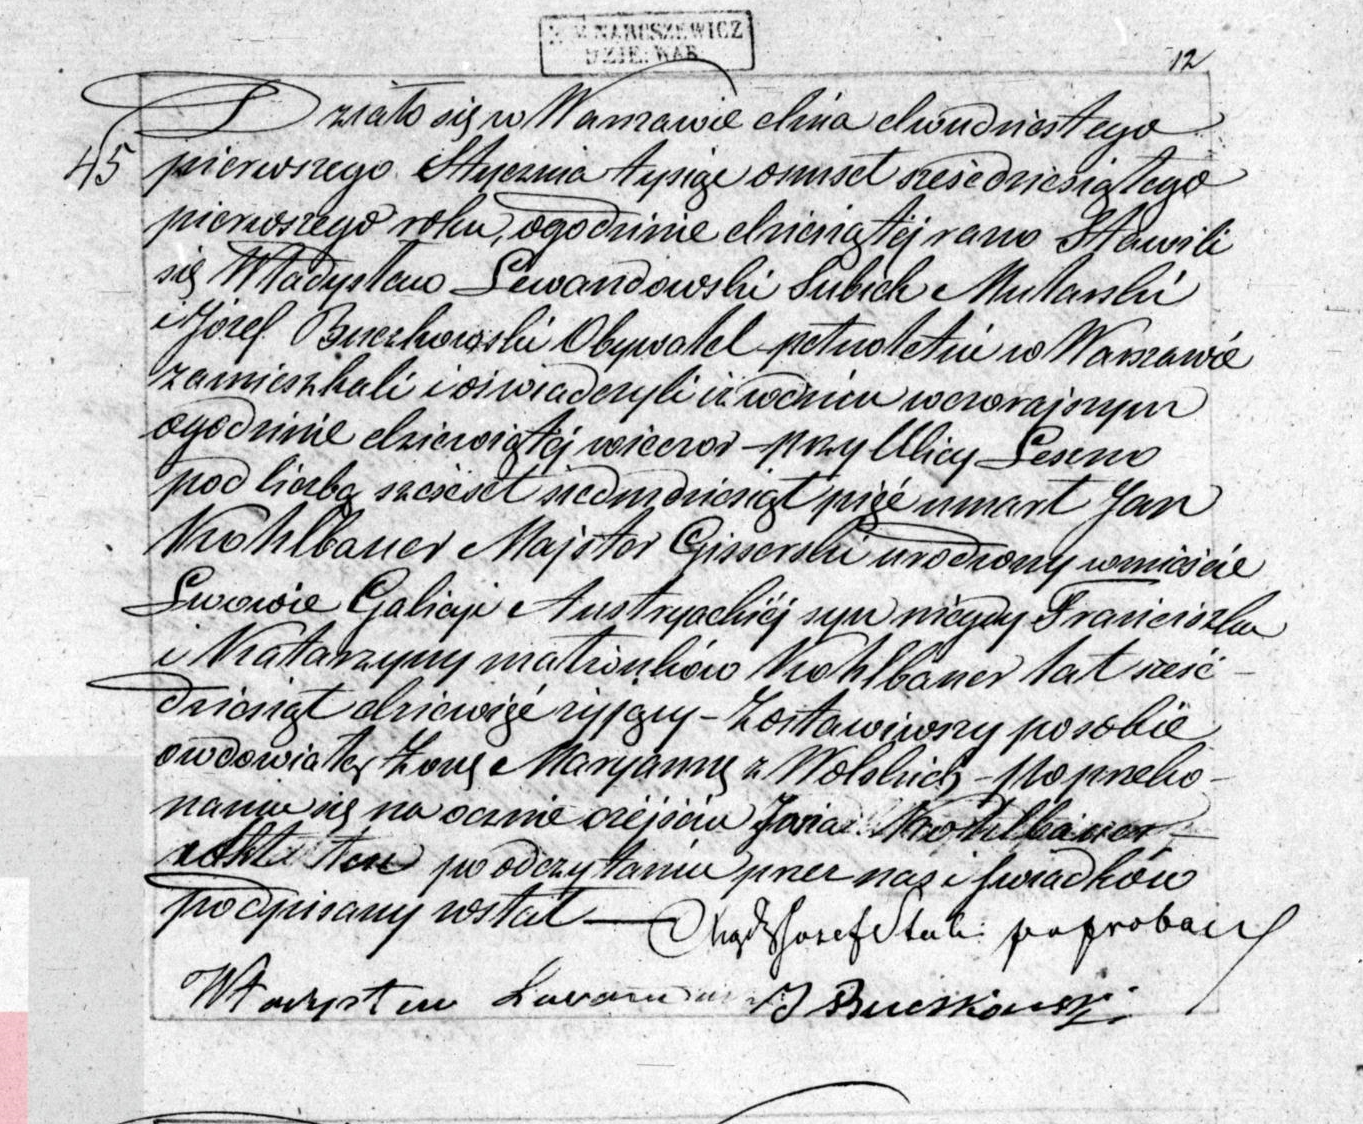 NARUSZEWICZ
12
Działo się w Warszawie dnia dwudziestego
45 pierwszego Stycznia tysiąc osmset sześcdziesiątego
pierwszego roku, o godzinie dziesiątéj rano Stawili
się Władysław Lewandowski Subiek Mularski
i Józef Buczkowski Obywatel pełnoletni w Warszawie
zamieszkali i oświadczyli iż w dniu wczorajszym
o godzinie dziewiątéj wieczor – przy Ulicy Leszno
pod liczbą szescset siedmdziesiąt pięć umarł Jan
Kohlbauer Majster Gisserski urodzony w mieście
Lwowie Galicji Austryackiéj syn niegdy Franciszka
i Katarzyny małżonków Kohlbauer lat sześć –
dziesiąt dziewięć żyjący – Zostawiwszy po sobie
owdowiałą Żonę Maryannę z Wolskich – po przeko –
naniu się na ocznie o zejściu Jana Kohlbauer –
Akt ten po odczytaniu przez nas i świadków
podpisany został — Józef
Władysław J Buczkowski